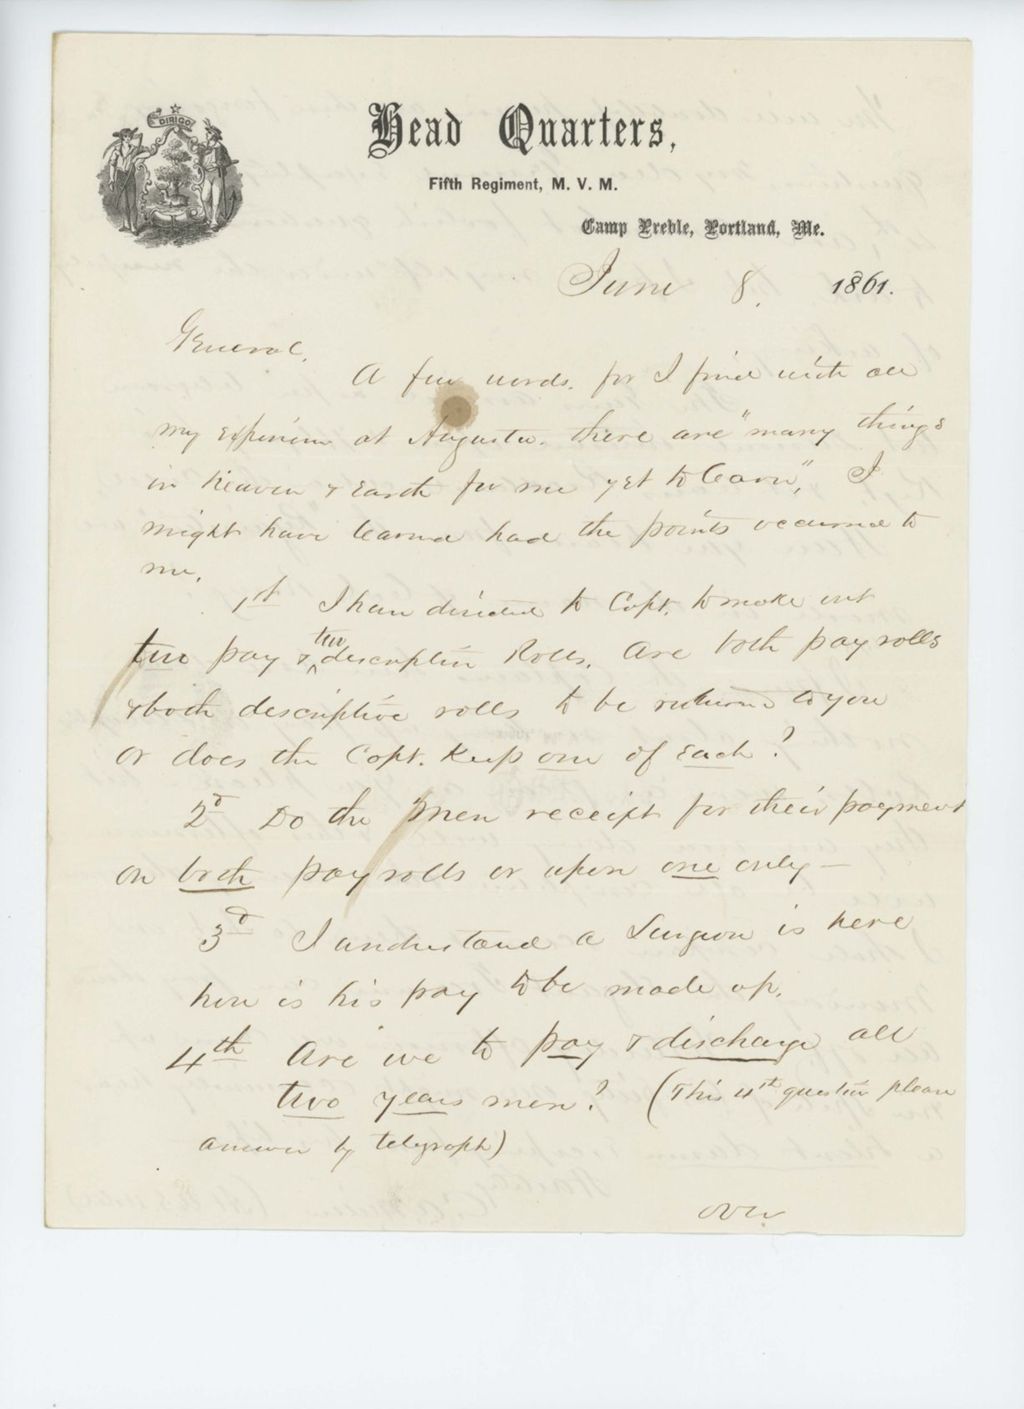 DIRIGO
Head Quarters,
Fifth Regiment, M. V. M.
Camp Preble, Portland, Me.
June 8, 1861.
General.
A few words. for I find with all
my experience at Augusta. there are "many things
in heaven & Earth for me yet to learn," I
might have learned had the points occurred to
me.
1st I have directed the Capt. to make out
two pay & two descriptive Rolls. Are both pay rolls
& both descriptive rolls to be returned to you
or does the Capt. Keep one of Each?
2d Do the men receipt for their payment
on both pay rolls or upon one only —
3d I understand a Surgeon is here
how is his pay to be made up.
4th Are we to pay & discharge all
two years men? (This 4th question please
answer by telegraph)
over